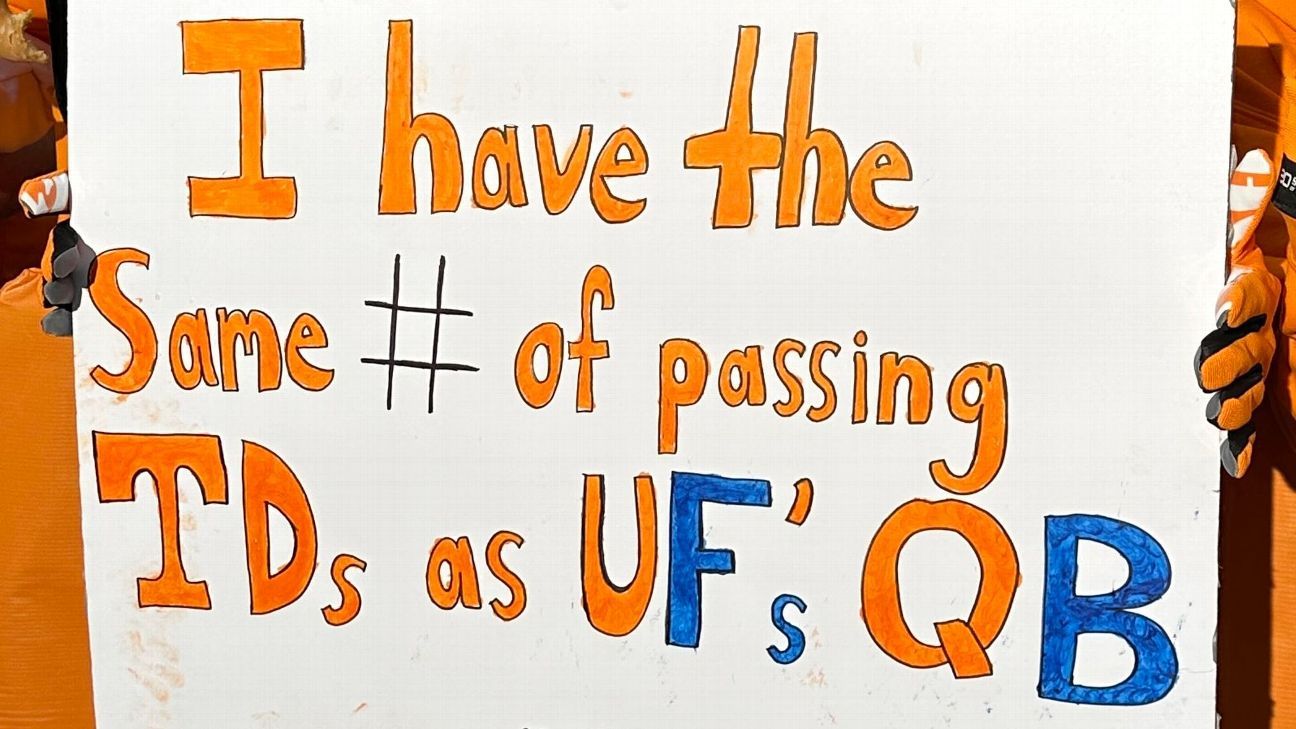 I have the
Same # of passing
TDs as UF's QB